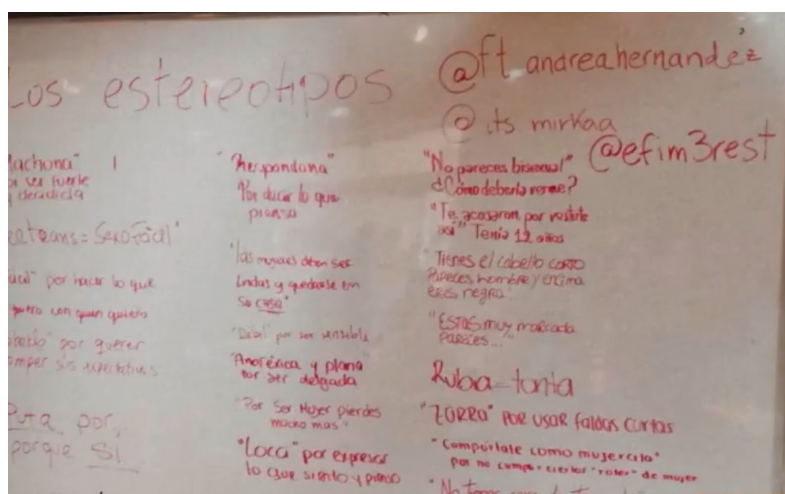 Los estereotipos
@ft.andreahernandez
@its mirkaa
@efim3rest
"Machona"
por ser fuerte
y decidida
trans = Sexo Fácil"
por hacer lo que
quiero con quien quiero
por querer
romper sus expectativas
Puta por,
porque SÍ.
"Respondona"
Por decir lo que
pienso
"las mujeres deben ser
Lindas y quedarse en
su casa"
"Débil" por ser sensible
"Anoréxica y plana
por ser delgada
"Por Ser Mujer pierdes
mucho mas"
"Loca" por expresar
lo que siento y pienso
"No pareces bisexual"
¿Cómo debería verme?
"Te acosaron por vestirte
así" Tenía 12 años
Tienes el cabello corto
Pareces hombre y encima
eres negra"
"ESTÁS muy marcada
pareces..."
Rubia = tonta
"ZORRA" POR USAR FALDAS CORTAS
"Compórtate como mujercita"
por no cumplir ciertos "roles" de mujer
"No